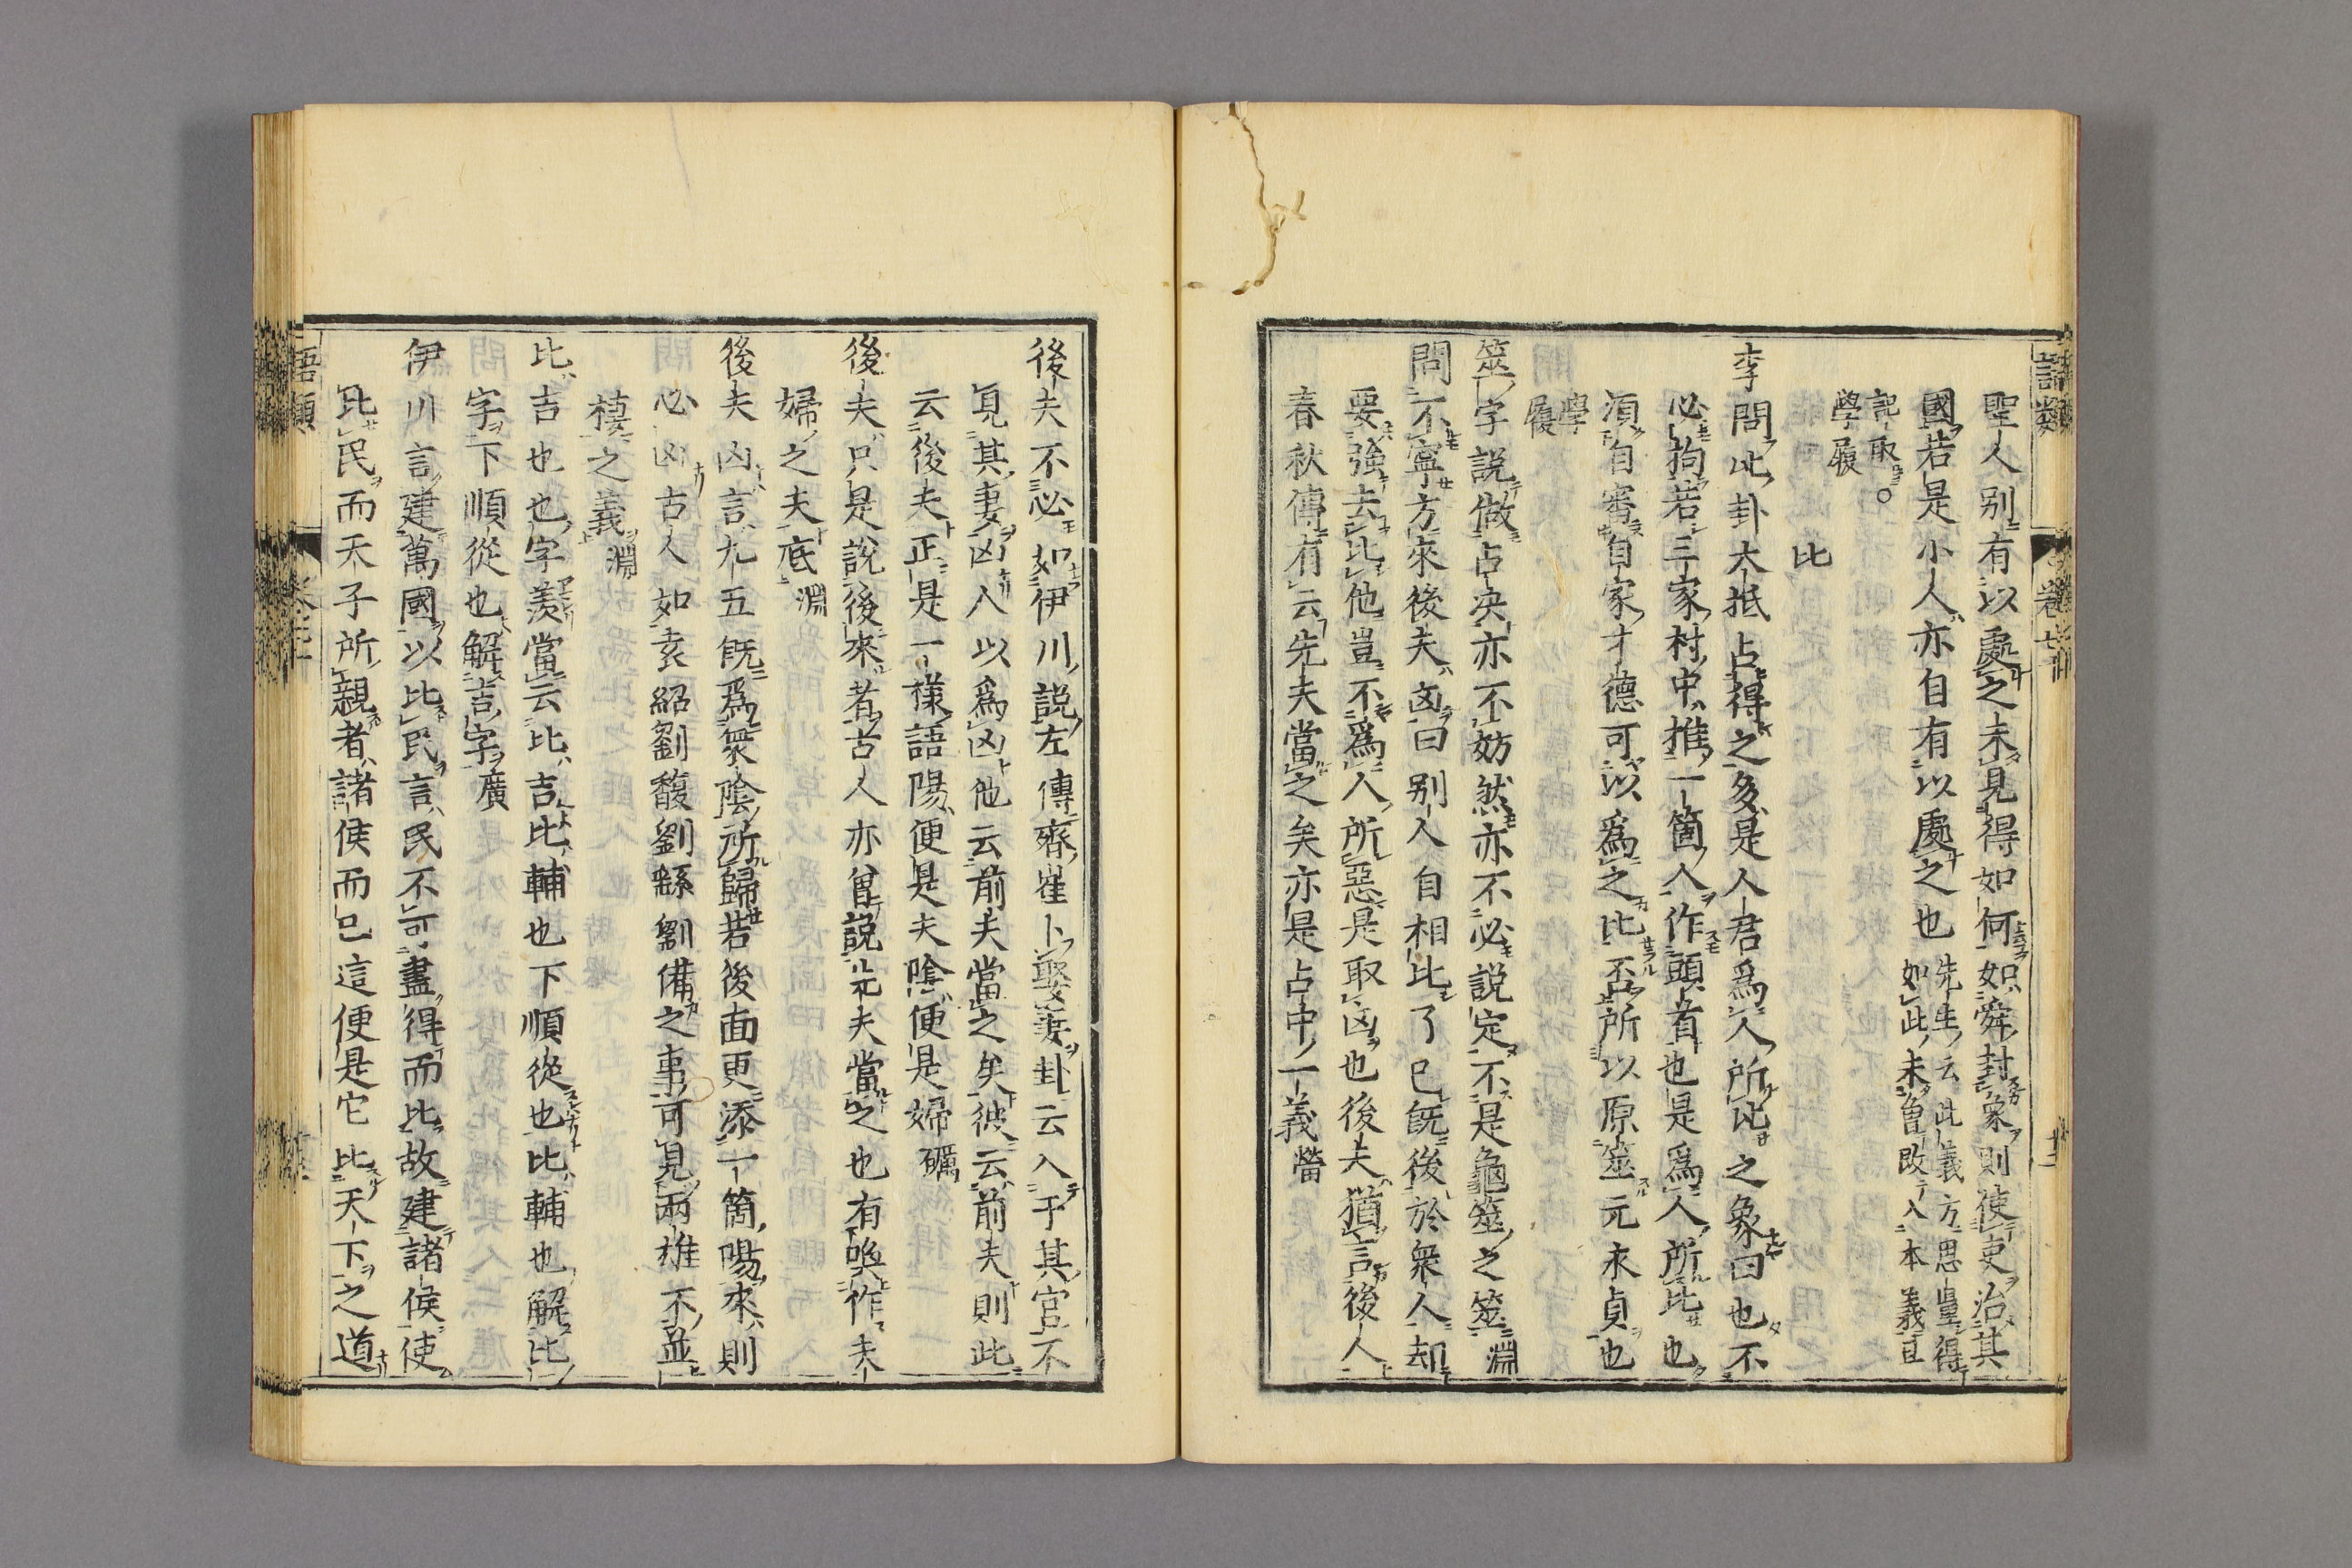 聖人別有以處之未見得如何如舜封象則使吏治其
國若是小人亦自有以處之也先生云此義方思量得
如此未曾改入本義且
記取
學履
比
李問比卦大抵占得之多是人君爲人所比之象曰也不
必拘若三家村中推一箇人作頭首也是爲人所比也
須自審自家才德可以爲之比否所以原筮元永貞也
學
履
筮字説做占決亦不妨然亦不必説定不是龜筮之筮淵
問不寧方來後夫凶曰别人自相比了已既後於衆人却
要強去比他豈不爲人所惡是取凶也後夫猶言後人
春秋傳有云先夫當之矣亦是占中一義㽦
後夫不必如伊川説左傳齊崔卜娶妻卦云入于其宮不
見其妻凶人以爲凶他云前夫當之矣彼云前夫則此
云後夫正是一樣語陽便是夫陰便是婦礪
後夫只是説後來者古人亦曾説先夫當之也有喚作夫
婦之夫底淵
後夫凶言九五既爲衆陰所歸若後面更添一箇陽來則
必凶古人如袁紹劉馥劉繇劉備之事可見兩雄不並
棲之義淵
比吉也也字羨當云比吉比輔也下順從也比輔也解比
字下順從也解吉字廣
伊川言建萬國以比民言民不可盡得而比故建諸侯使
比民而天子所親者諸侯而已這便是它比天下之道
語類